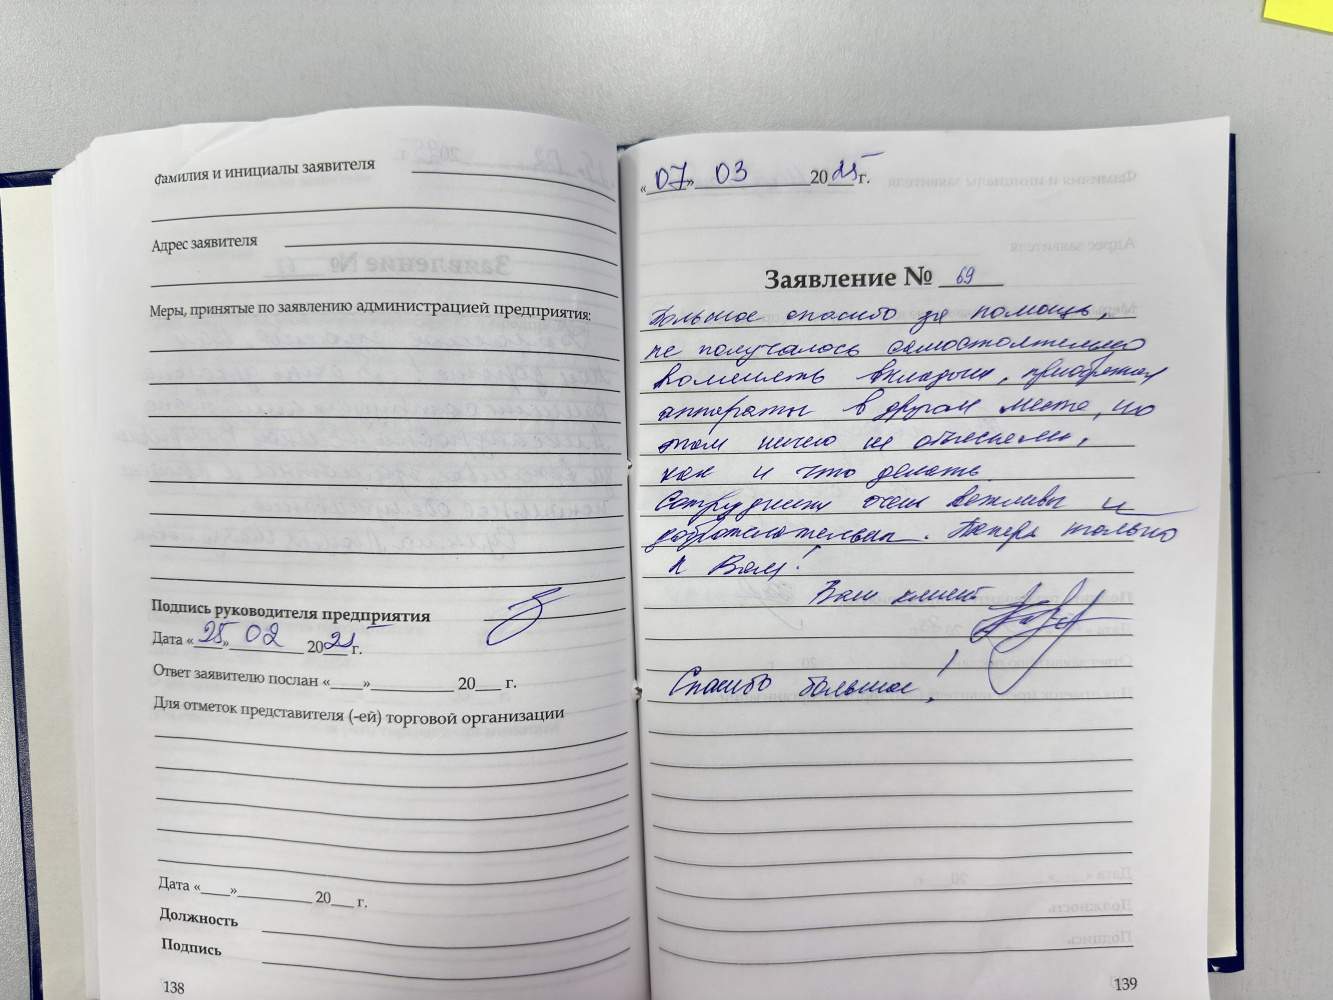 Фамилия и инициалы заявителя
Адрес заявителя
Меры, принятые по заявлению администрацией предприятия:
Подпись руководителя предприятия
Дата «25» 02 2025 г.
Ответ заявителю послан «____»__________ 20___ г.
Для отметок представителя (-ей) торговой организации
Дата «____»__________ 20___ г.
Должность
Подпись
138
«07» 03 2025 г.
Заявление № 69
Большое спасибо за помощь,
не получалось самостоятельно
поменять вкладыши, приобретали
аппараты в другом месте, но
там ничего не объяснили,
как и что делать.
Сотрудники очень вежливы и
доброжелательны. Теперь только
к Вам!
Ваш клиент
Спасибо большое!
139